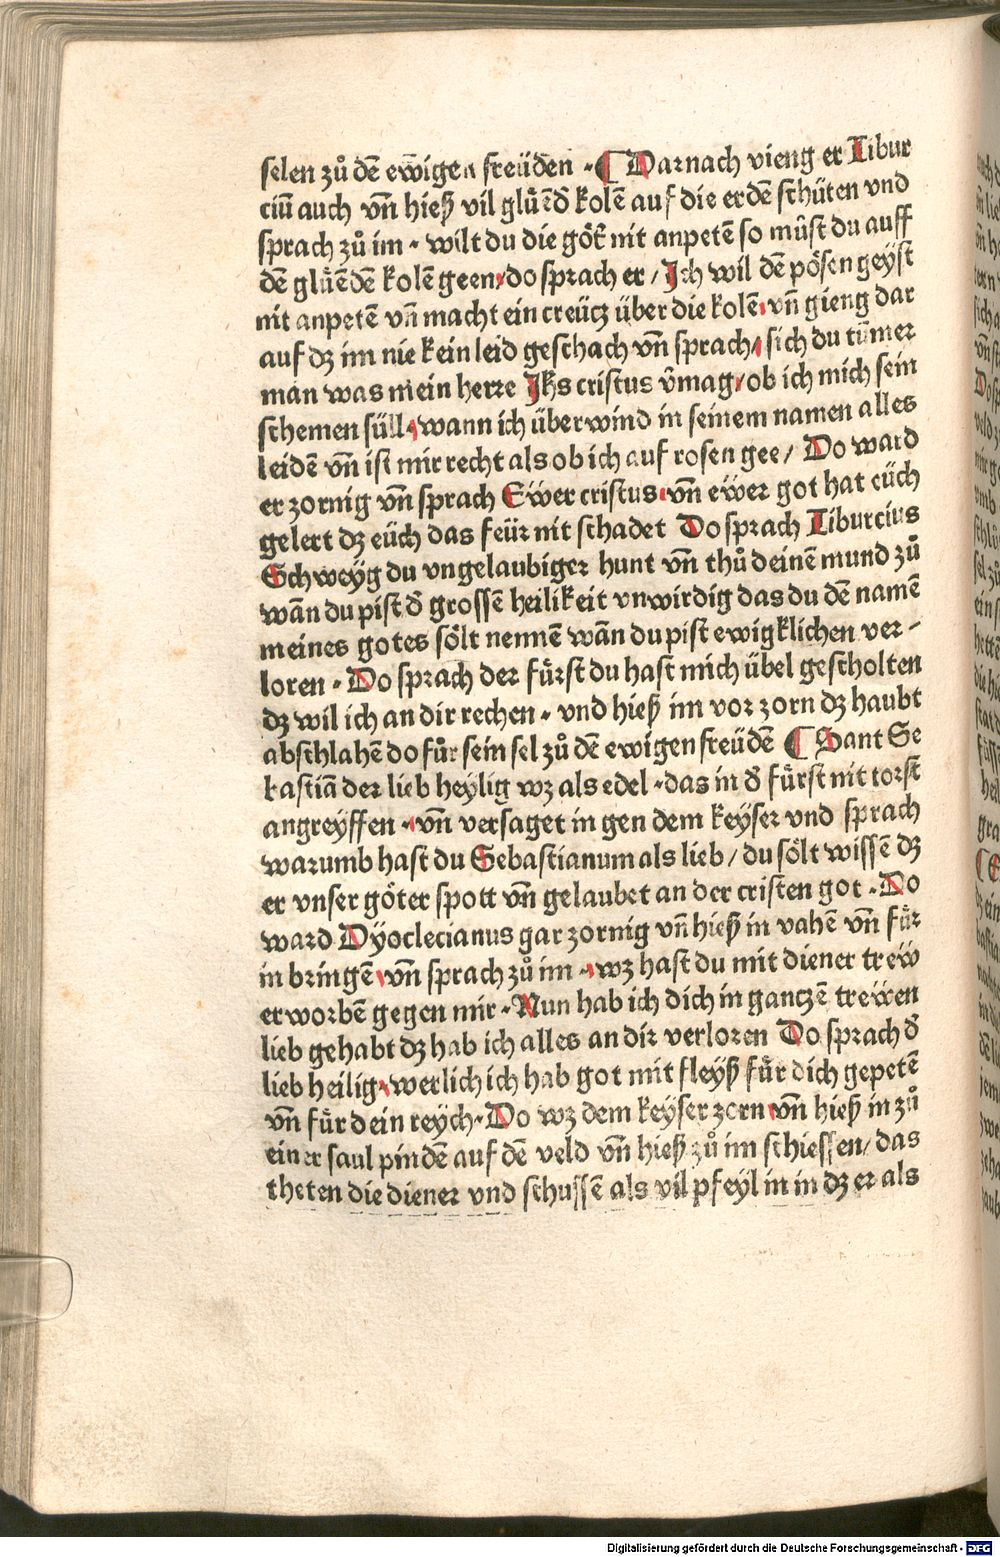 selen zů dē ew̄igen freüden · ¶ Darnach vieng er Tibur
ciū auch vn̄ hieß vil glůēd̄ kolē auf die erdē schüten vnd
sprach zů im · wilt du die göt̄ nit anpetē so můst du auff
dē glůēdē kolē geen / do sprach er / Ich wil dē pösen geyst
nit anpetē vn̄ macht ein creücz über die kolē / vn̄ gieng dar
auf dz im nie kein leid geschach vn̄ sprach / sich du tūmer
man was mein herre Jhs cristus v̄mag / ob ich mich sein
schemen süll / wann ich überwind in seinem namen alles
leidē vn̄ ist mir recht als ob ich auf rosen gee / Do ward
er zornig vn̄ sprach Ewer cristus / vn̄ ewer got hat eüch
gelert dz eüch das feür nit schadet Do sprach Tiburcius
Schweyg du vngelaubiger hunt vn̄ thů deinē mund zů
wān du pist d̄ grossē heilikeit vnwirdig das du dē namē
meines gotes sölt nennē wān du pist ewigklichen ver-
loren · Do sprach der fürst du hast mich übel gescholten
dz wil ich an dir rechen · vnd hieß im vor zorn dz haubt
abschlahē do fůr sein sel zů dē ewigen freüdē ¶ Sant Se
bastiā der lieb heylig wz als edel · das in d̄ fürst nit torst
angreyffen · vn̄ versaget in gen dem keyser vnd sprach
warumb hast du Sebastianum als lieb / du sölt wissē dz
er vnser göter spott vn̄ gelaubet an der cristen got · Do
ward Dyoclecianus gar zornig vn̄ hieß in vahē vn̄ für
in bringē / vn̄ sprach zů im · wz hast du mit diener trew
erworbē gegen mir · Nun hab ich dich in ganczē trewen
lieb gehabt dz hab ich alles an dir verloren Do sprach d̄
lieb heilig / werlich ich hab got mit fleyß für dich gepetē
vn̄ für dein reych · Do wz dem keyser zorn / vn̄ hieß in zů
einer saul pindē auf dē veld vn̄ hieß zů im schiessen / das
theten die diener vnd schussē als vil pfeyl in in dz er als
Digitalisierung gefördert durch die Deutsche Forschungsgemeinschaft - DFG